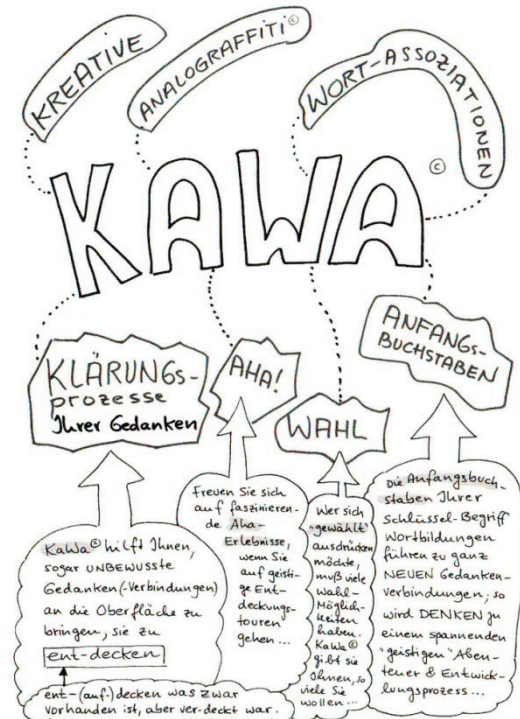 KREATIVE
ANALOGRAFFITI©
WORT-ASSOZIATIONEN
KAWA©
KLÄRUNGS-
prozesse
Ihrer Gedanken
AHA!
WAHL
ANFANGS-
BUCHSTABEN
KaWa© hilft Ihnen,
sogar UNBEWUSSTE
Gedanken(-Verbindungen)
an die Oberfläche zu
bringen, sie zu
ent-decken
ent-(auf-)decken was zwar
vorhanden ist, aber ver-deckt war.
Freuen Sie sich
auf faszinieren-
de Aha-
Erlebnisse,
wenn Sie
auf geisti-
ge Ent-
deckungs-
touren
gehen...
Wer sich
"gewählt"
ausdrücken
möchte,
muß viele
Wahl-
Möglich-
keiten
haben.
KaWa©
gibt sie
Ihnen, so
viele Sie
wollen...
Die Anfangsbuch-
staben Ihrer
Schlüssel-Begriff
Wortbildungen
führen zu ganz
NEUEN Gedanken-
verbindungen; so
wird DENKEN zu
einem spannenden
"geistigen" Aben-
teuer & Entwick-
lungsprozess...